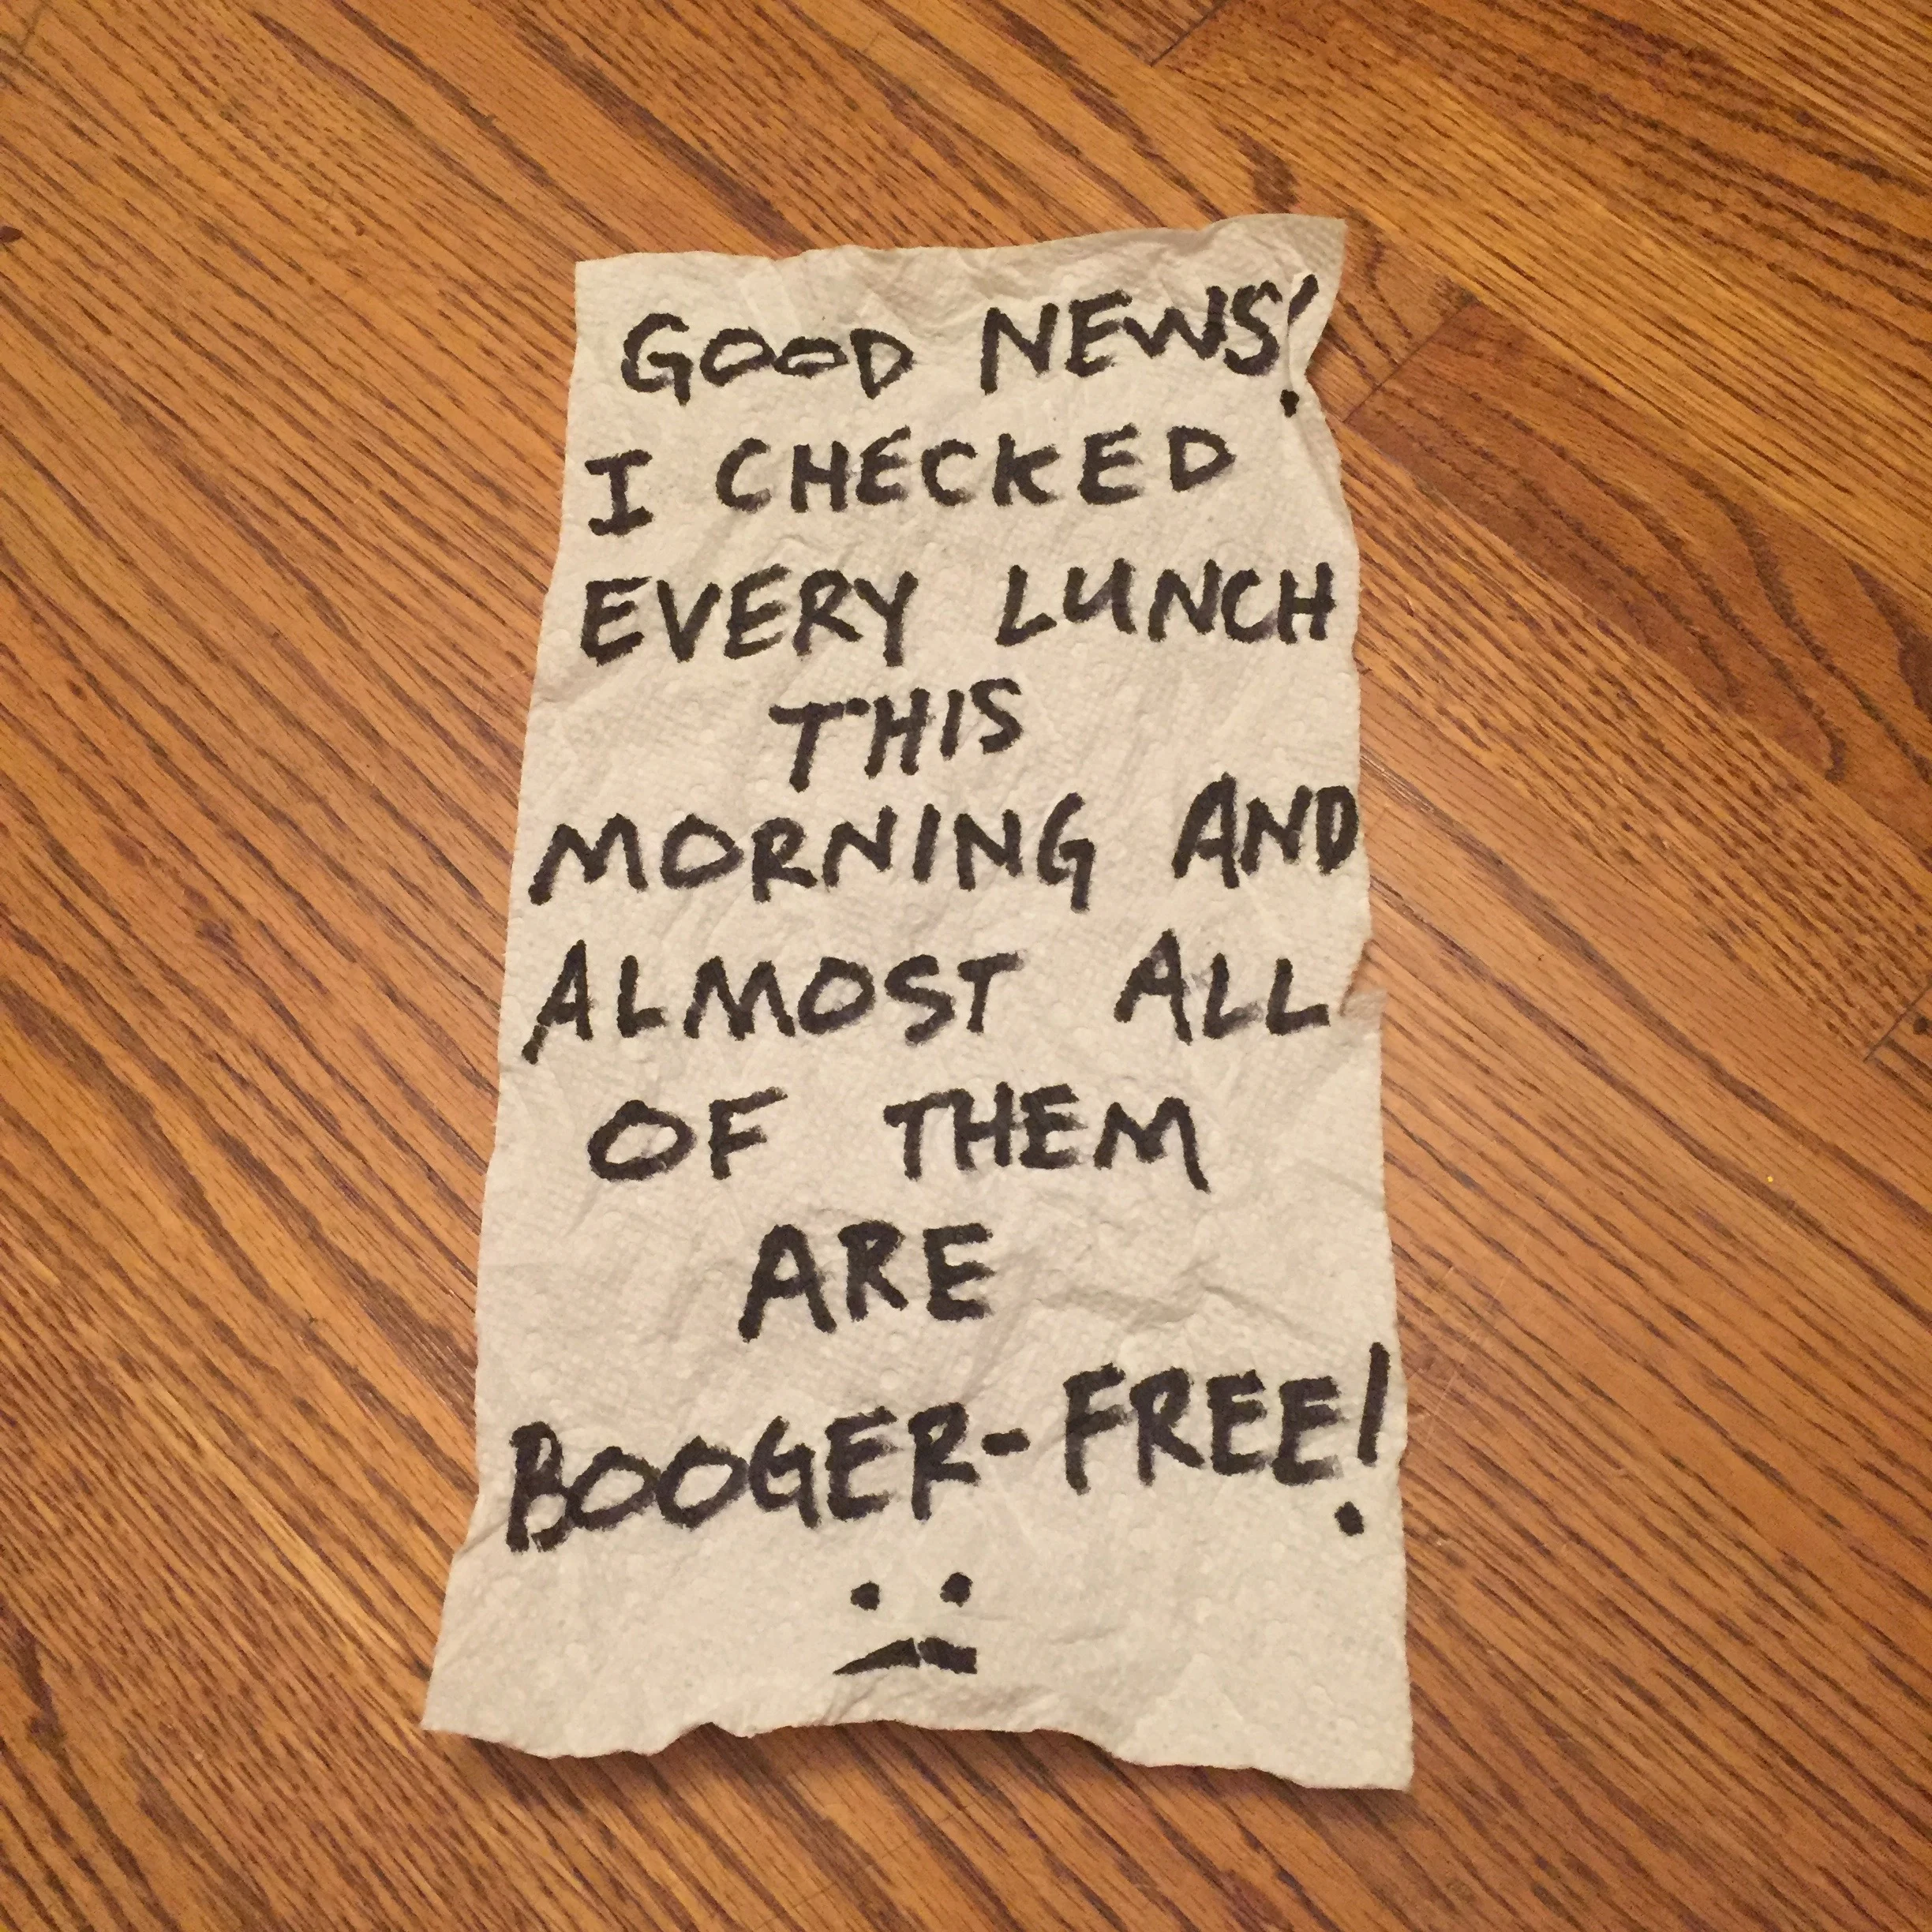 GOOD NEWS!
I CHECKED
EVERY LUNCH
THIS
MORNING AND
ALMOST ALL
OF THEM
ARE
BOOGER-FREE!